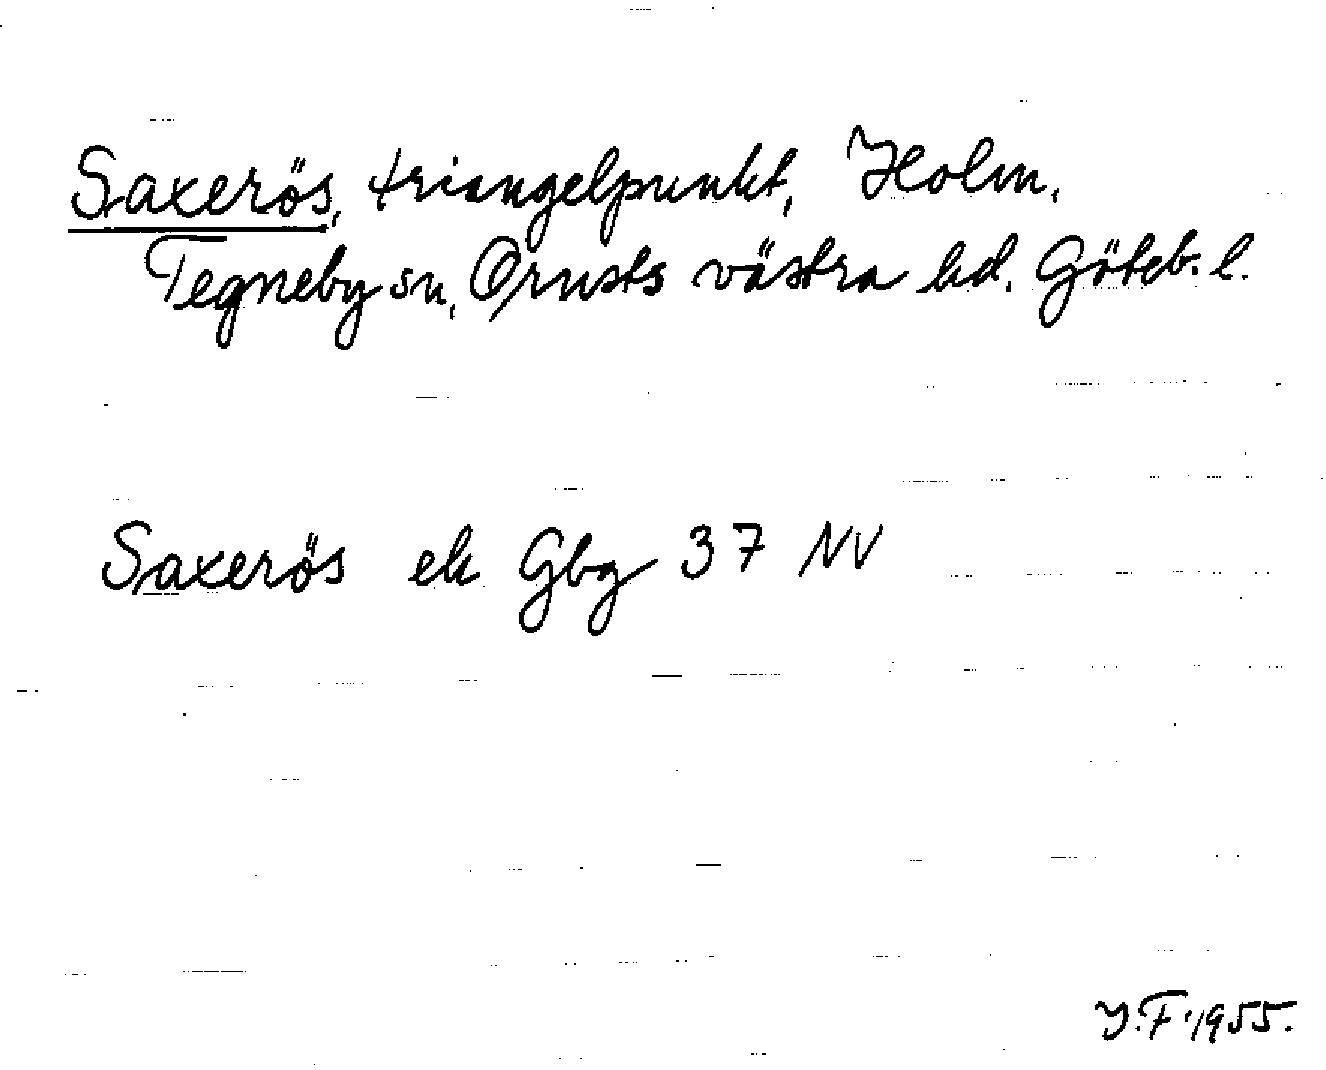 Saxerös, triangelpunkt, Holm,
Tegneby sn, Orusts västra hd. Göteb. l.
Saxerös ek Gbg 37 NV
Y.F. 1955.